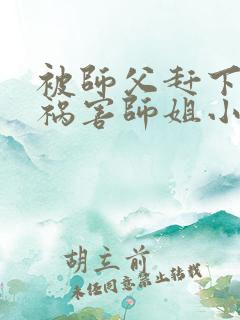 被師父赶下
祸害師姐小
胡立前
未经同意禁止转载